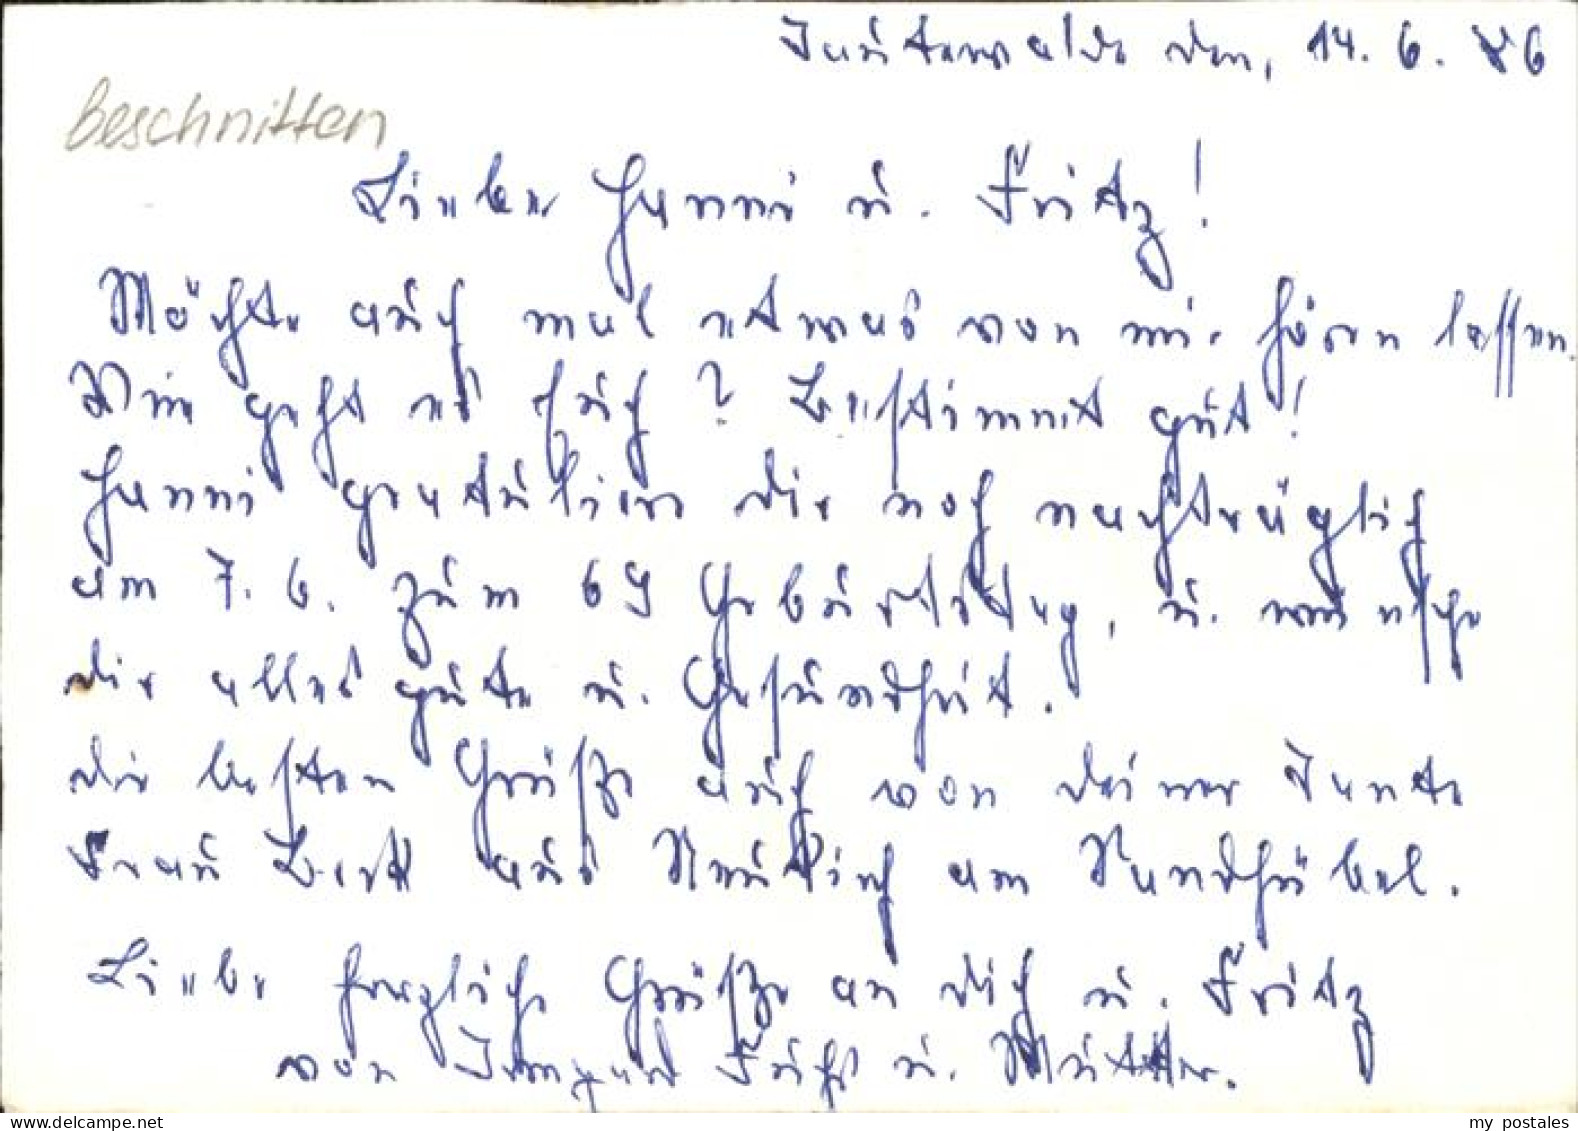 den, 14. 6. 86
beschnitten
Liebe Hanni u. Fritz!
Möchte auch mal etwas von mir hören lassen.
Wie geht es Euch? Bestimmt gut!
Hanni gratuliere dir noch nachträglich
am 7. 6. zum 69 Geburtstag, u. wünsche
dir alles gute u. Gesundheit.
die besten Grüße auch von deiner Tante
Frau aus am
Liebe herzliche Grüße an dich u. Fritz
von Irmgard Fuchs u. Mutter.
www.delcampe.net
my_postales